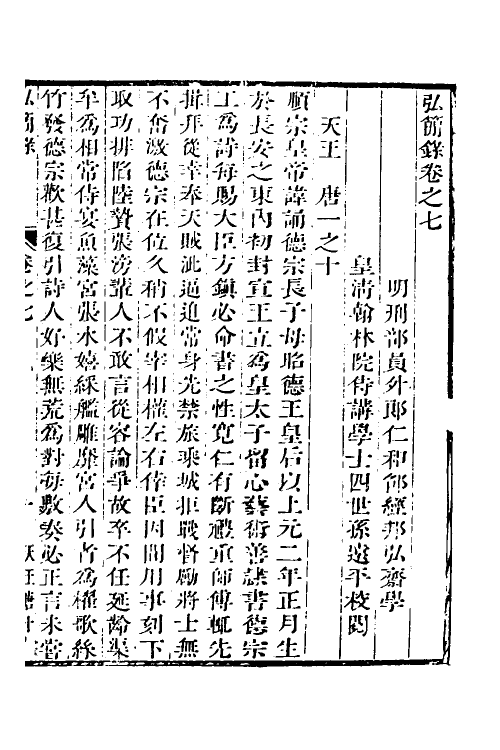 弘簡錄卷之七
明刑部員外郎仁和邵經邦弘齋學
皇清翰林院侍講學士四世孫遠平校閱
天王　唐一之十
順宗皇帝諱誦德宗長子母昭德王皇后以上元二年正月生
於長安之東內初封宣王立為皇太子留心藝術善隸書德宗
工為詩每賜大臣方鎮必命書之性寬仁有斷禮重師傅輒先
拜從幸奉天賊泚逼迫常身先禁旅乘城拒戰督勵將士無
不奮激德宗在位久稍不假宰相權左右倖臣因間用事刻下
取功排陷陸贄張滂輩人不敢言從容論爭故卒不任延齡渠
牟為相常侍宴魚藻宮張水嬉綵艦雕靡宮人引舟為櫂歌絲
竹發德宗歡甚復引詩人好樂無荒為對每敷奏必正言未嘗
弘簡錄　卷之七　一